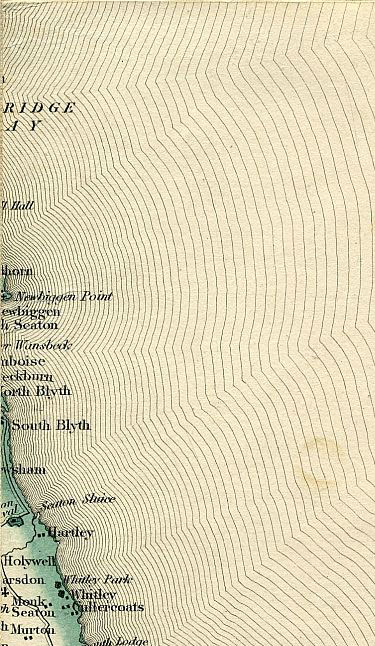 RIDGE
AY
Hall
horn
Newbiggen Point
ewbiggen
h Seaton
r Wansbeck
mboise
eckburn
orth Blyth
South Blyth
wsham
Seaton Sluice
on
val
Hartley
Holywell
arsdon
Whitley Park
Whitley
Monk
Cullercoats
h Seaton
h Murton
uth Lodge